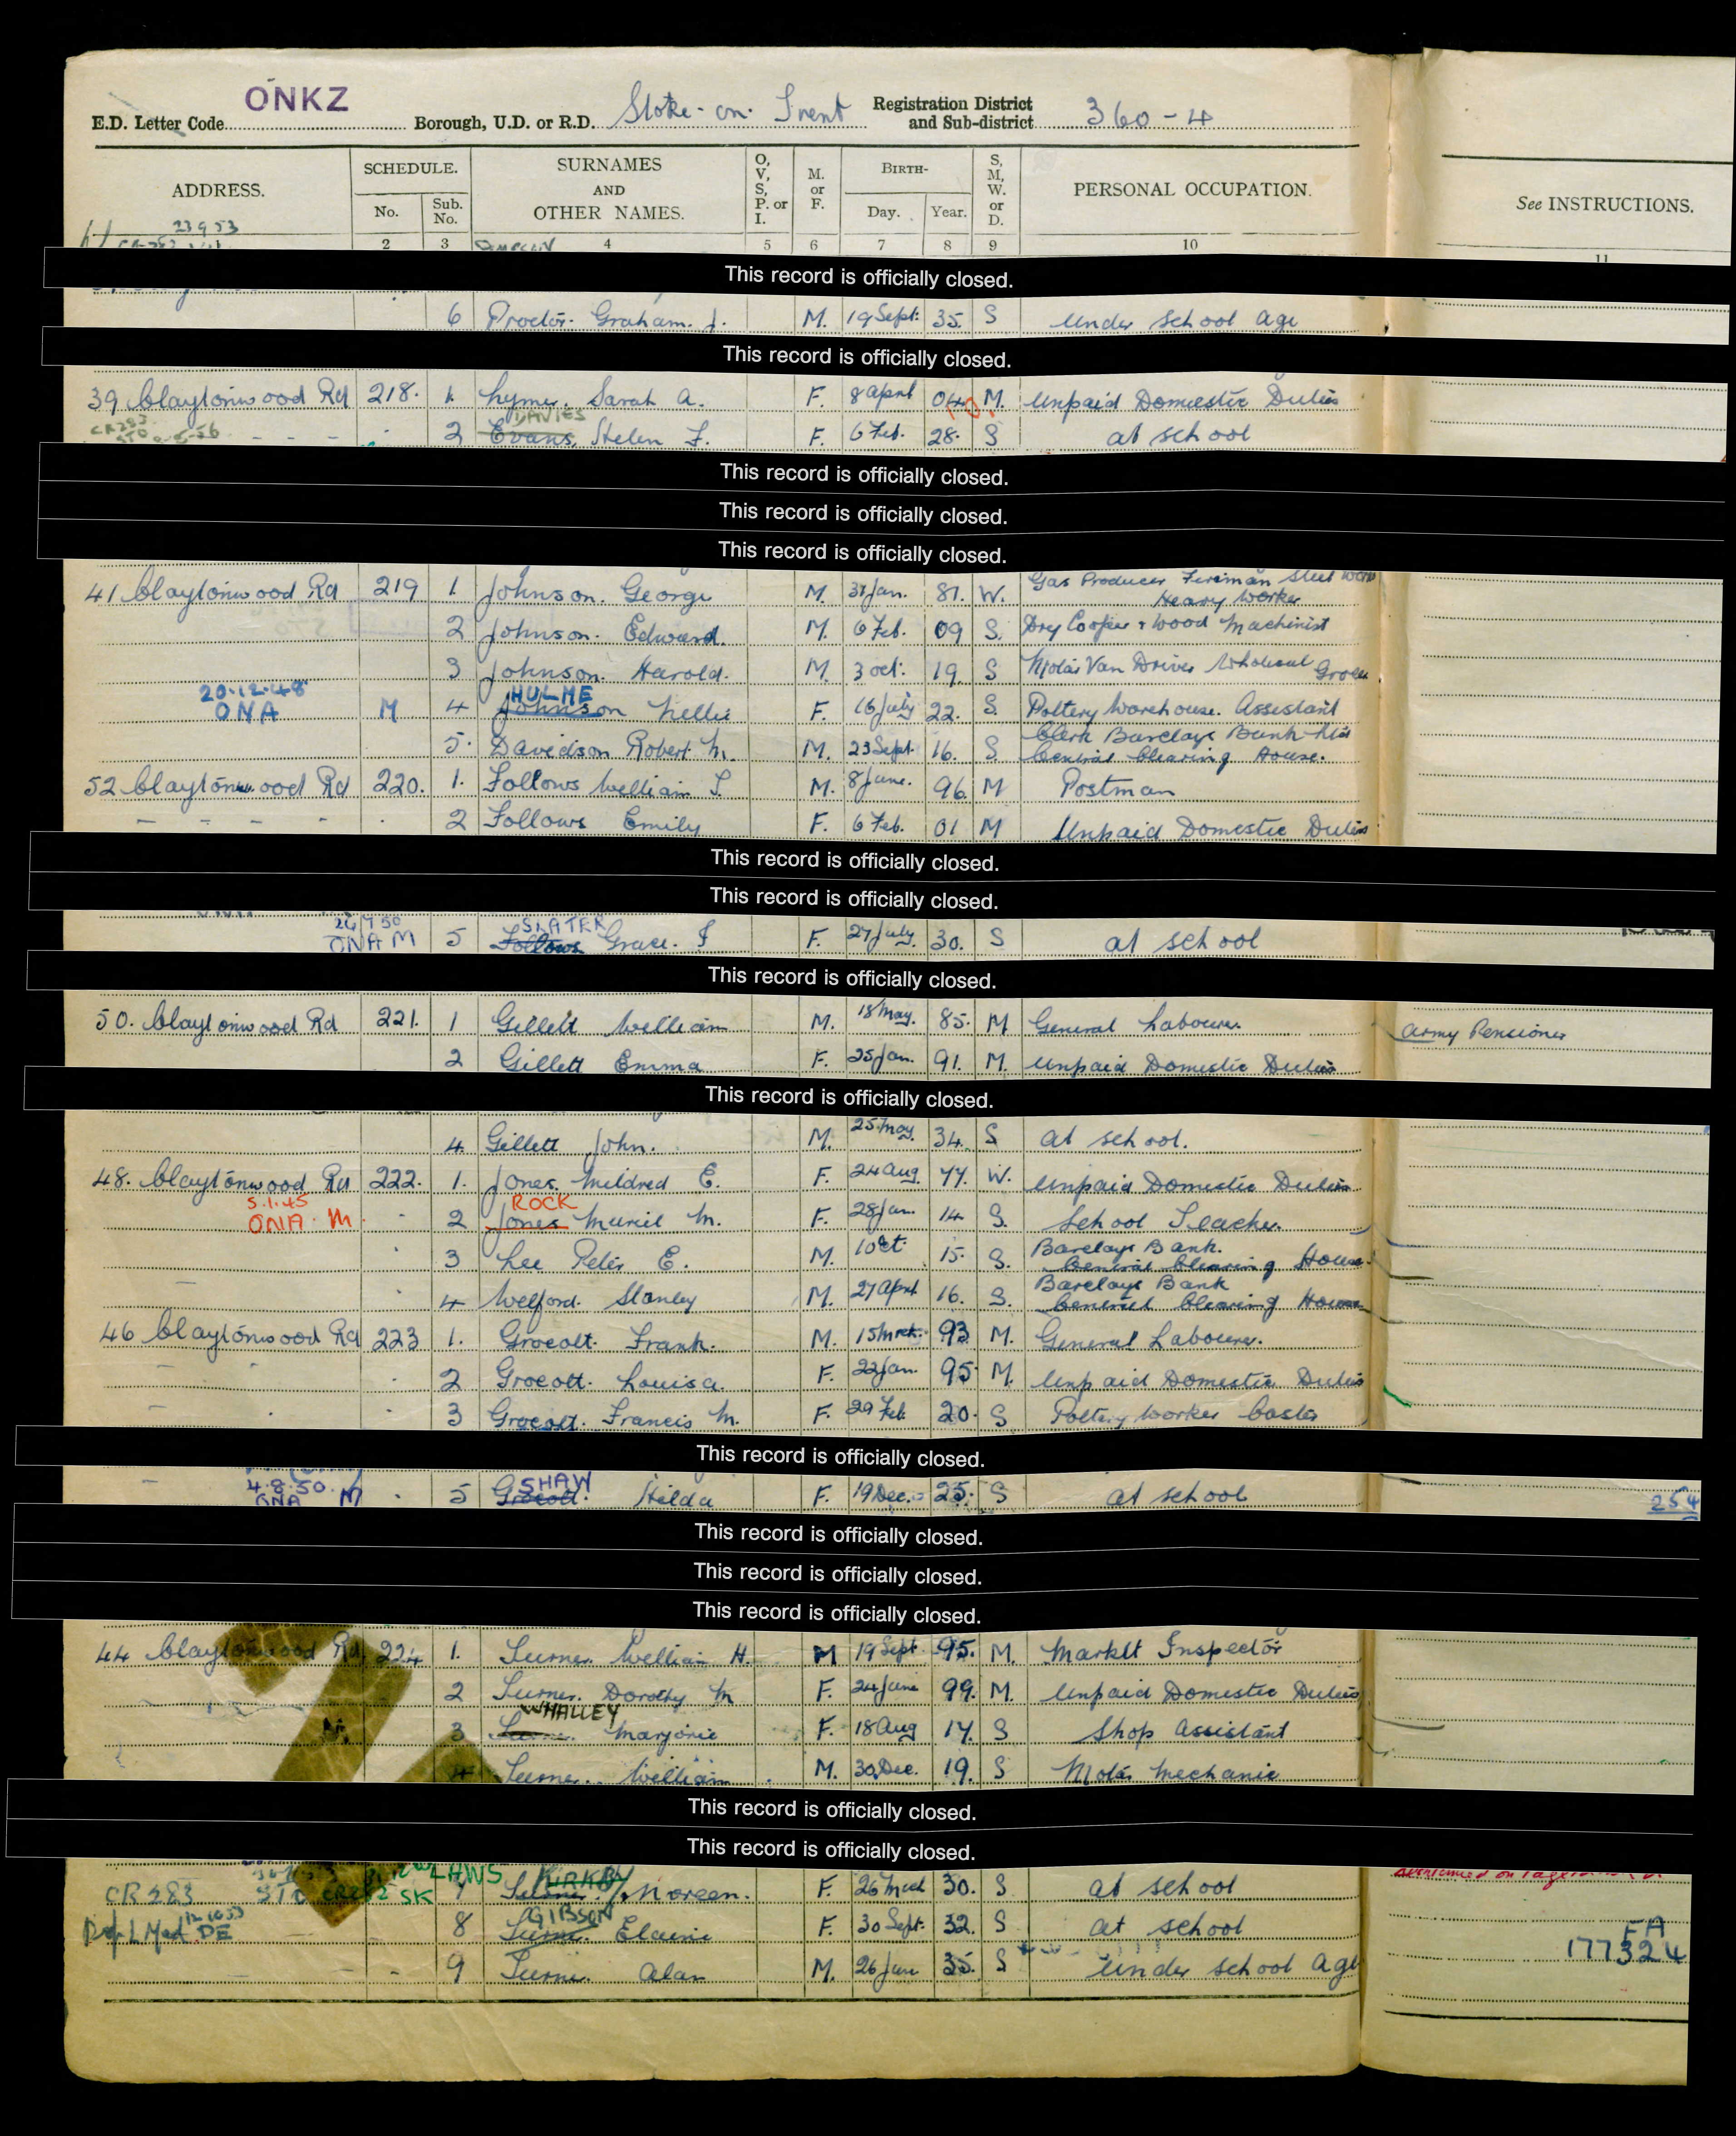 ONKZ
E.D. Letter Code Borough, U.D. or R.D. Stoke-on-Trent Registration District and Sub-district 360-4
ADDRESS. SCHEDULE. No. Sub. No. SURNAMES AND OTHER NAMES. O, V, S, P. or I. M. or F. BIRTH- Day. Year. S, M, W. or D. PERSONAL OCCUPATION. See INSTRUCTIONS.
23953
2 3 4 5 6 7 8 9 10 11
This record is officially closed.
6 Proctor. Graham. J. M. 19 Sept. 35. S under school age
This record is officially closed.
39 Claytonwood Rd 218. 1. Lymer. Sarah A. F. 8 April 04 M. Unpaid Domestic Duties
DAVIES
CR283 STO 2-5-56 2 Evans, Helen F. F. 6 Feb. 28. S at school
This record is officially closed.
This record is officially closed.
This record is officially closed.
41 Claytonwood Rd 219 1. Johnson. George M. 31 Jan. 81. W. Gas Producer Fireman Steel Work Heavy Worker
2 Johnson. Edward. M. 6 Feb. 09 S. Dry Cooper & Wood Machinist
3 Johnson. Harold. M. 3 Oct. 19. S Motor Van Driver Wholesale Grocer
20.12.48 HULME
ONA M 4 Johnson Nellie F. 16 July 22. S. Pottery Warehouse. Assistant
5. Davidson Robert M. 23 Sept. 16. S Clerk Barclays Bank Ltd Central Clearing House.
52 Claytonwood Rd 220. 1. Follows William T. M. 8 June. 96. M Postman
2 Follows Emily F. 6 Feb. 01 M Unpaid Domestic Duties
This record is officially closed.
This record is officially closed.
26 7 50 SLATER
ONA M 5 Follows Grace. F. 27 July. 30. S at school
This record is officially closed.
50. Claytonwood Rd 221. 1 Gillett William M. 18 May. 85. M General Labourer. Army Pensioner
2 Gillett Emma F. 25 Jan. 91. M. Unpaid Domestic Duties
This record is officially closed.
4. Gillett John. M. 25 May. 34. S at school.
48. Claytonwood Rd 222. 1. Jones. Mildred E. F. 24 Aug 77. W. Unpaid Domestic Duties
5.1.45 ROCK
ONA M 2 Jones Muriel M. F. 28 Jan. 14 S. School Teacher.
3 Lee Peter E. M. 1 Oct 15. S. Barclays Bank. Central Clearing House
4 Welford. Stanley M. 27 April 16. S. Barclays Bank Central Clearing House
46 Claytonwood Rd 223 1. Grocott. Frank. M. 15 Mch. 93. M. General Labourer.
2 Grocott. Louisa. F. 22 Jan. 95. M. Unpaid Domestic Duties
3 Grocott. Francis M. F. 29 Feb. 20. S Pottery Worker Caster
This record is officially closed.
4.8.50. SHAW
ONA M 5 Grocott. Hilda F. 19 Dec. 25. S at school 254
This record is officially closed.
This record is officially closed.
This record is officially closed.
44 Claytonwood Rd 224 1. Turner. William H. M 19 Sept. 95. M. Market Inspector
2 Turner. Dorothy M F. 24 June 99. M. Unpaid Domestic Duties
WHALLEY
3 Turner. Marjorie F. 18 Aug 17. S Shop Assistant
4 Turner. William M. 30 Dec. 19. S Motor Mechanic
This record is officially closed.
This record is officially closed.
LAWS KIRKBY
CR283 STO CR282 SK 7 Turner. Noreen. F. 26 Mch 30. S at school
GIBSON
12.10.53 DE 8 Turner. Elaine F. 30 Sept. 32. S at school FA
9 Turner. Alan M. 26 Jan 35. S under school age 177324